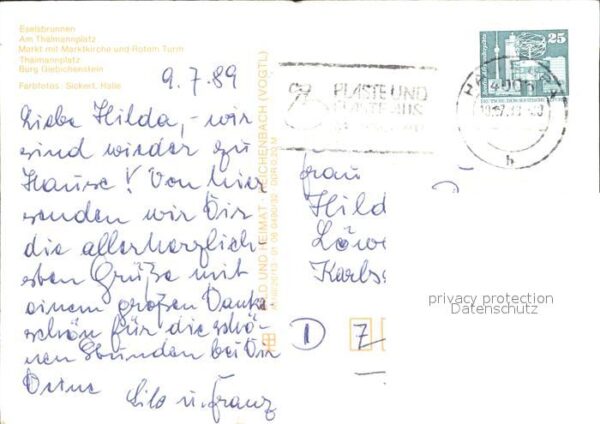 Eselsbrunnen
Am Thälmannplatz
Markt mit Marktkirche und Rotem Turm
Thälmannplatz
Burg Giebichenstein
Farbfotos: Sickert, Halle
9.7.89
Liebe Hilda, – wir
sind wieder zu
Hause! Von hier
senden wir Dir
die allerherzlich
sten Grüße mit
einem großen Danke
schön für die schö-
nen Stunden bei Dir
Deine
Lilo u. Franz
BILD UND HEIMAT REICHENBACH (VOGTL)
DDR 0,20 M
PLASTE UND
25
Frau
Hild
Löwe
Karls
D
privacy protection
Datenschutz